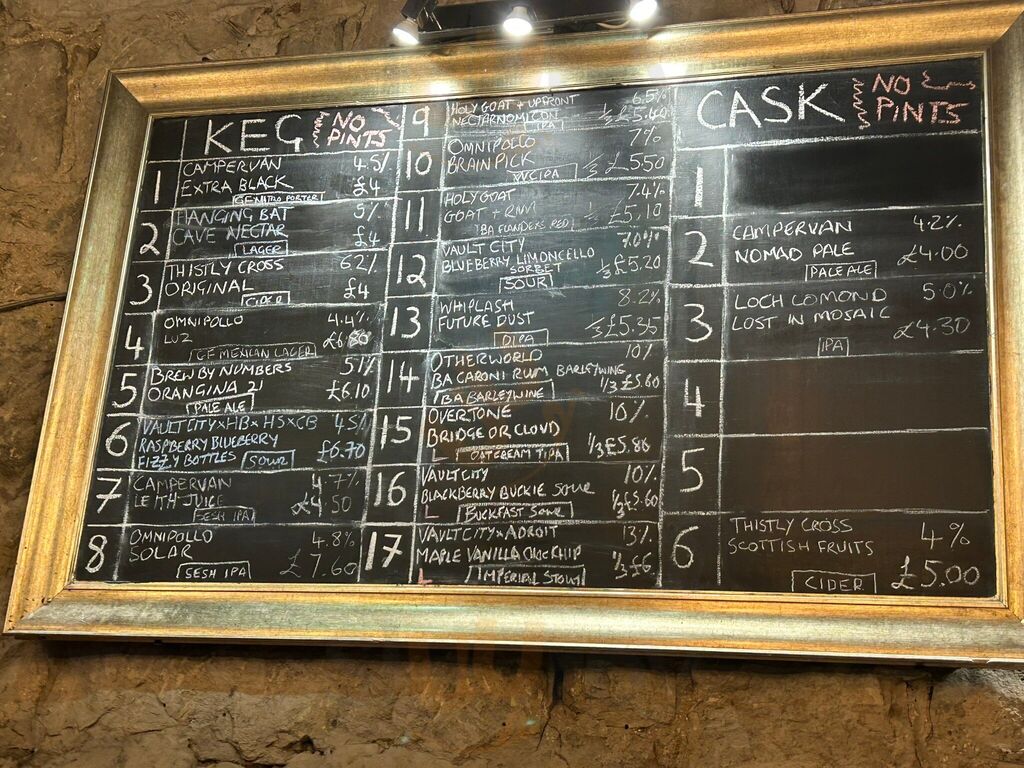 KEG NO
PINTS
1 CAMPERVAN 4.5%
EXTRA BLACK £4
PORTER
2 HANGING BAT 5%
CAVE NECTAR £4
LAGER
3 THISTLY CROSS 6.2%
ORIGINAL £4
CIDER
4 OMNIPOLLO 4.4%
LUZ
MEXICAN LAGER
5 BREW BY NUMBERS 5.1%
ORANGINA 21 £6.10
PALE ALE
6 VAULT CITY x HB x HS x CB 4.5%
RASPBERRY BLUEBERRY £6.70
FIZZY BOTTLES SOUR
7 CAMPERVAN 4.7%
LEITH JUICE £4.50
SESH IPA
8 OMNIPOLLO 4.8%
SOLAR £7.60
SESH IPA
9 HOLY GOAT + UPFRONT 6.5%
NECTARNOMICON 1/3 £5.40
IPA
10 OMNIPOLLO 7%
BRAINPICK 1/3 £5.50
WCIPA
11 HOLY GOAT 7.4%
GOAT + RUM 1/3 £5.10
BA FLANDERS RED
12 VAULT CITY 7.0%
BLUEBERRY LIMONCELLO
SORBET 1/3 £5.20
SOUR
13 WHIPLASH 8.2%
FUTURE DUST 1/3 £5.35
DIPA
14 OTHERWORLD 10%
BA CARONI RUM BARLEYWINE
BA BARLEYWINE 1/3 £5.60
15 OVERTONE 10%
BRIDGE OR CLOUD
OATCREAM TIPA 1/3 £5.80
16 VAULT CITY 10%
BLACKBERRY BUCKIE SOUR 1/3 £5.60
BUCKFAST SOUR
17 VAULT CITY x ADROIT 13%
MAPLE VANILLA CHOC CHIP 1/3 £6
IMPERIAL STOUT
CASK NO
PINTS
1
2 CAMPERVAN 4.2%
NOMAD PALE £4.00
PALE ALE
3 LOCH LOMOND 5.0%
LOST IN MOSAIC £4.30
IPA
4
5
6 THISTLY CROSS 4%
SCOTTISH FRUITS
CIDER £5.00